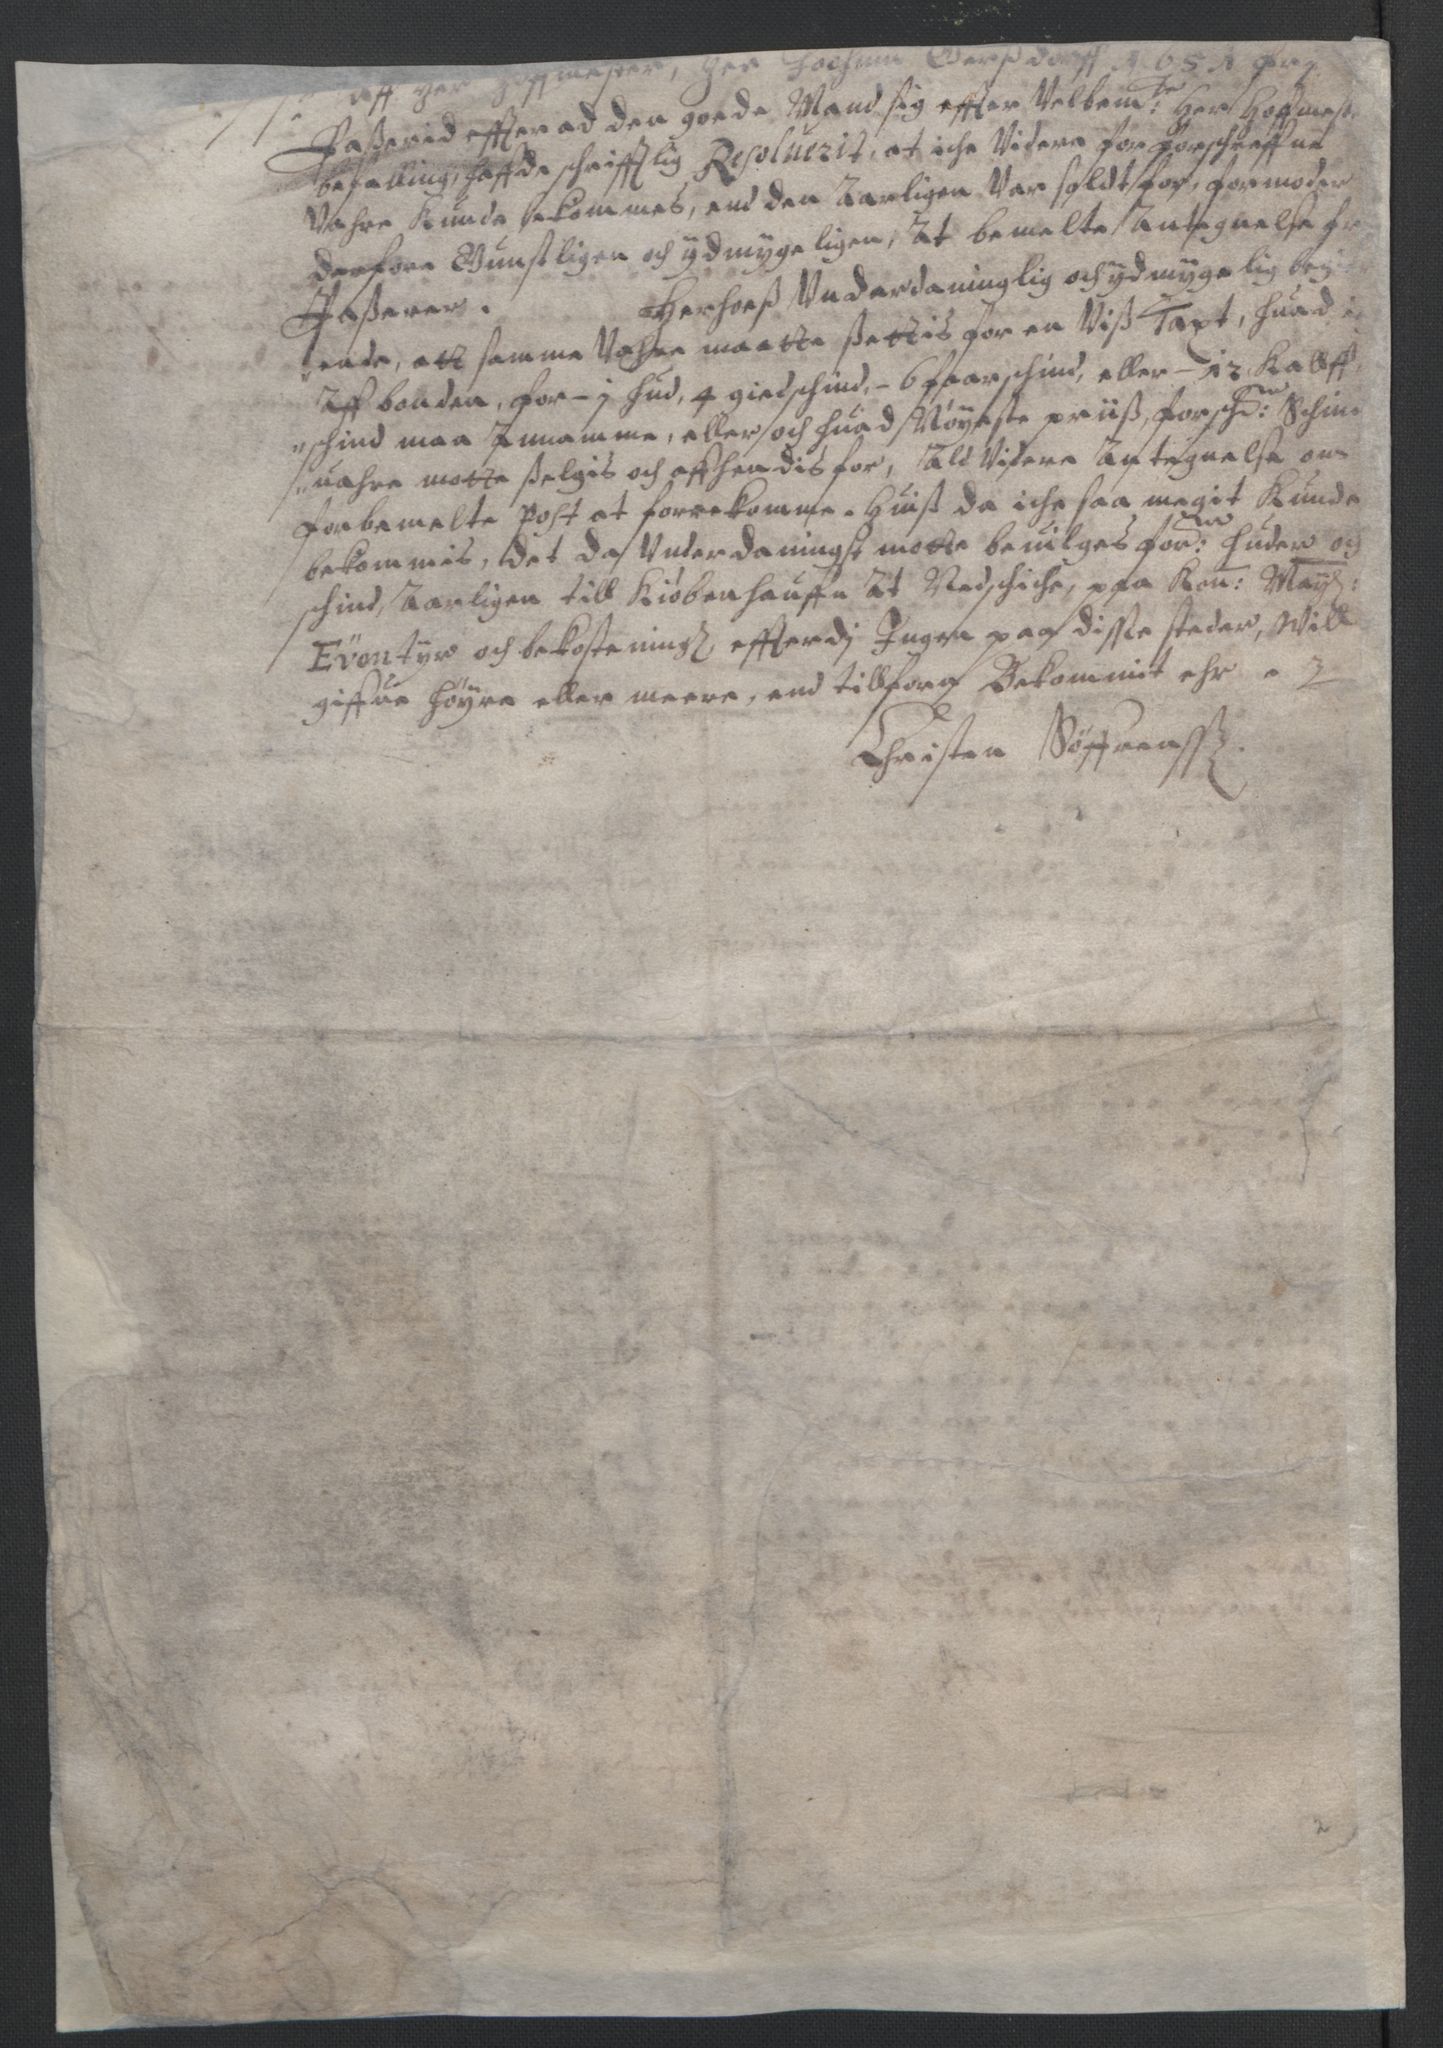 aff Her Hoffmester, Her Jochum Gersdorff 1651
Paßerid effter ad den goede Mand sig effter Velbem:te Her Hoffmest.
befalling, haffde schrifftlig Resoluerit, at iche Videre for forschreffne
Vahre Kunde bekommes, end den Aarligen Var soldt for, formoder
derfore Gunstligen och ydmygeligen, At bemelte Antegnelse
Paßerer. Herhoeß Vnderdaninglig och ydmygelig begie-
rende, att samme Vahre maatte ßettis for en Viß Taxt, huad
Aff bonden, for - j hud, 4 giedschind, - 6 faarschind, eller - 12 Kalff-
schind maa Annamme, eller och huad Nøyeste priiß, forsch:ne Schin-
uahre motte ßelgis och affhendis for, Ald Videre Antegnelse om
forbemelte Post at forrekomme. Huiß da iche saa megit Kunde
bekommis, det da Vnderdaningst motte beuilges for:ne huder och
schind, Aarligen till Kiöbenhauffn At Nedschiche, paa Kon: May:
Eventyr och bekostening, effterdj Ingen paa disse steder, Will
giffue høyre eller meere, end tillforn Bekommit ehr
Christen Søffrenß